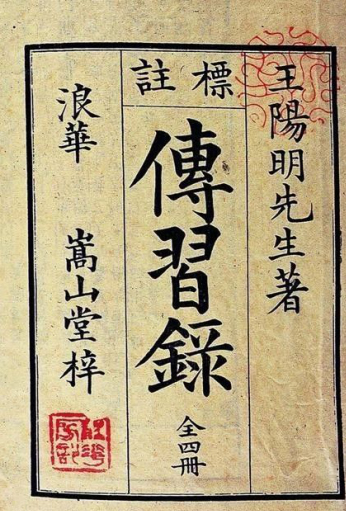 王陽明先生著
標註
傳習錄
全四冊
浪華 嵩山堂梓